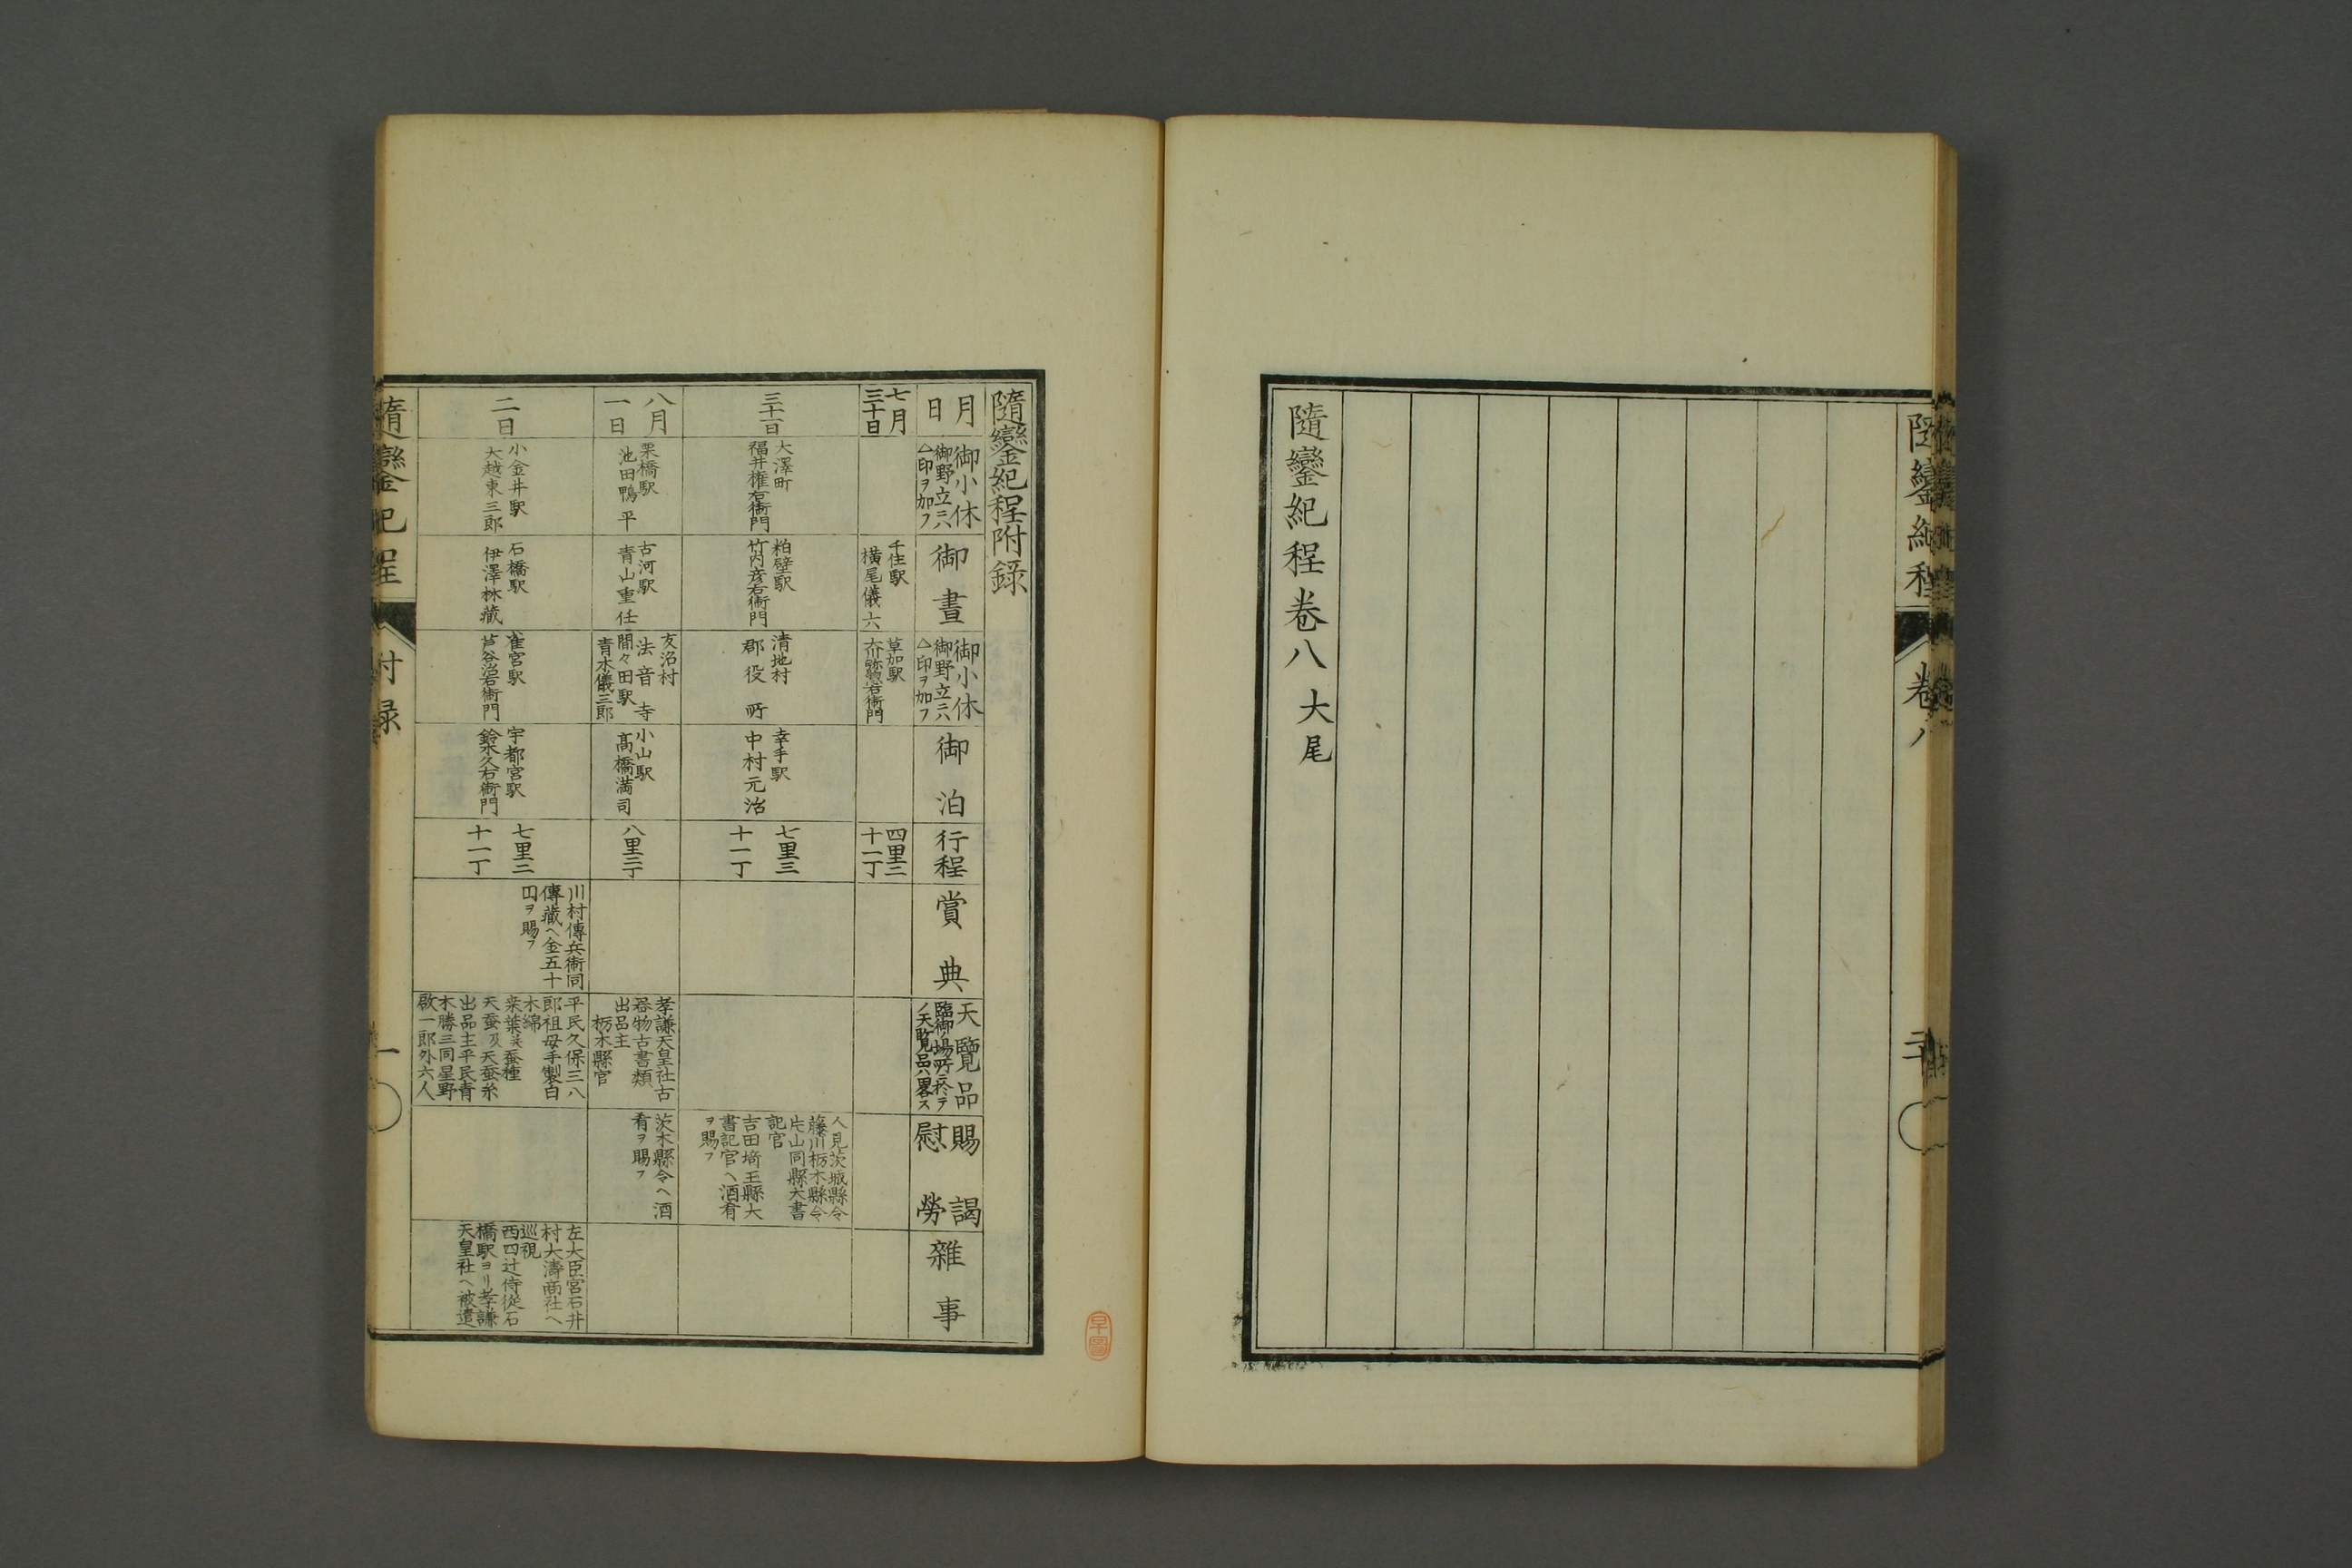 隨鑾紀程卷八大尾
隨鑾紀程附録
月日
御小休
御野立ハ
△印ヲ加フ
御晝
御小休
御野立ハ
△印ヲ加フ
御泊
行程
賞典
天覽品
臨御ノ場所ニ於テ
ノ天覧品ハ畧ス
賜謁
慰勞
雜事
七月
三十日
千住駅
横尾儀六
草加駅
大川弥惣右衛門
四里二
十二丁
三十一日
大澤町
福井権右衛門
粕壁駅
竹内彦右衛門
清地村
郡役所
幸手駅
中村元治
七里三
十一丁
人見茨城縣令
藤川栃木縣令
片山同縣大書
記官
吉田埼玉縣大
書記官ヘ酒肴
ヲ賜フ
八月
一日
栗橋駅
池田鴨平
古河駅
青山重任
友沼村
法音寺
間々田駅
青木儀三郎
小山駅
髙橋満司
八里三丁
孝謙天皇社古
器物古書類
出品主
栃木縣官
茨木縣令ヘ酒
肴ヲ賜フ
二日
小金井駅
大越東三郎
石橋駅
伊澤林藏
雀宮駅
芦谷治右衛門
宇都宮駅
鈴木久右衛門
七里二
十一丁
川村傳兵衛同
傳藏ヘ金五十
円ヲ賜フ
平民久保三八
郎祖母手製白
木綿
桒葉共蚕種
天蚕及天蚕糸
出品主平民青
木勝三同星野
啟一郎外六人
左大臣宮石井
村大濤商社ヘ
巡視
西四辻侍從石
橋駅ヨリ孝謙
天皇社ヘ被遣
隨鑾紀程
附録
一